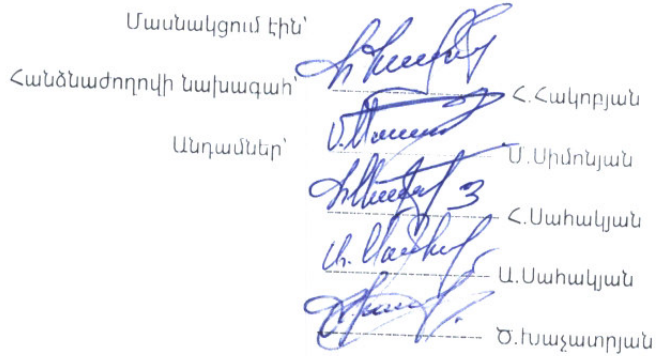 Մասնակցում էին՝
Հանձնաժողովի նախագահ՝ Հ.Հակոբյան
Անդամներ՝ Մ.Սիմոնյան
Հ.Սահակյան
Ա.Սահակյան
Ծ.Խաչատրյան